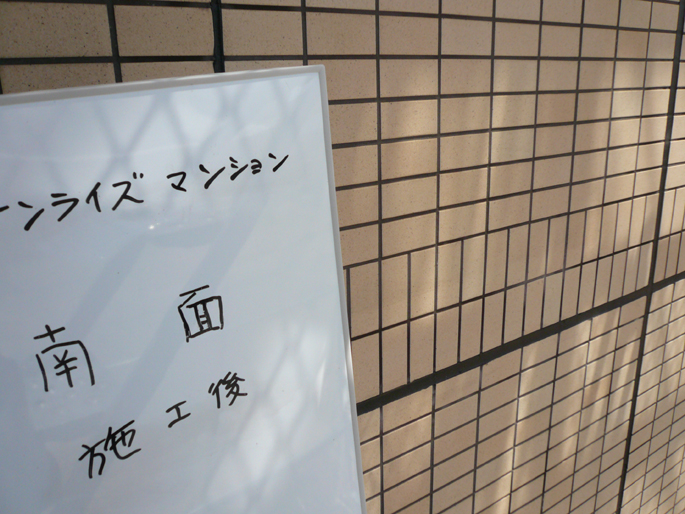 ーンライズ マンション
南面
施工後